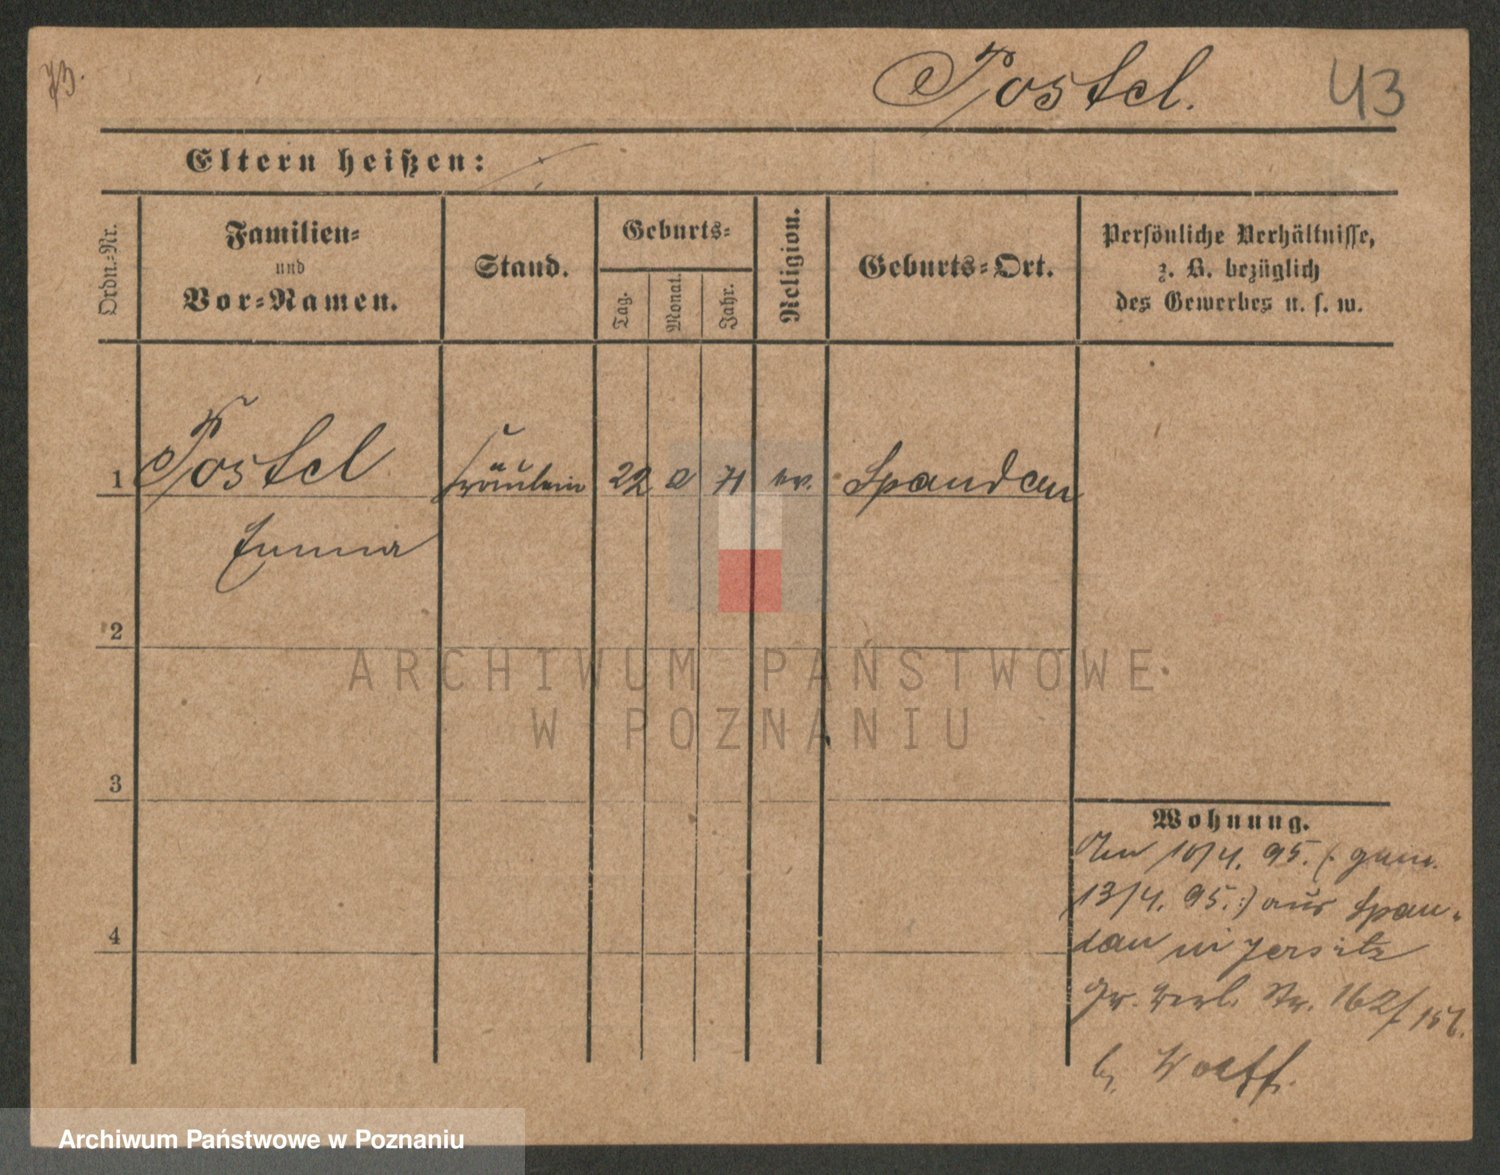 Postel. 43
Eltern heißen:
Ordn.-Nr.
Familien-
und
Vor-Namen.
Stand.
Geburts-
Tag.
Monat.
Jahr.
Religion.
Geburts-Ort.
Persönliche Verhältnisse,
z. B. bezüglich
des Gewerbes u. s. w.
1 Postel Fräulein 22 2 71 ev. Spandau
Emma
2
3
4
ARCHIWUM PAŃSTWOWE
W POZNANIU
Wohnung.
10/4. 95. (: gem.
13/4. 95. :) aus Span-
dau in Jersitz
Gr. Berl. Str. 162/
b. Wolff.
Archiwum Państwowe w Poznaniu